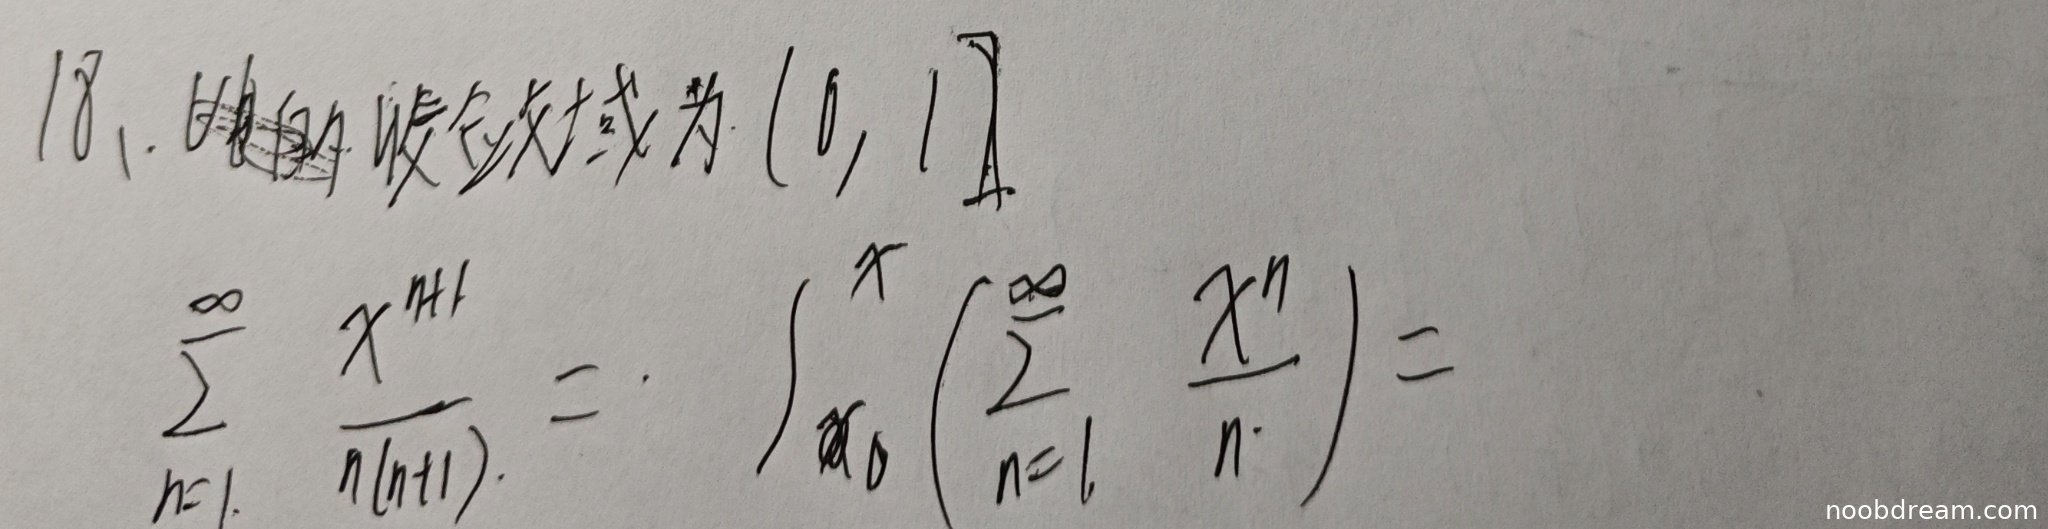 18、收敛域为 (0, 1]
∑_{n=1}^{∞} x^{n+1}/(n(n+1)) = ∫_{0}^{x} (∑_{n=1}^{∞} x^n/n) =
noobdream.com